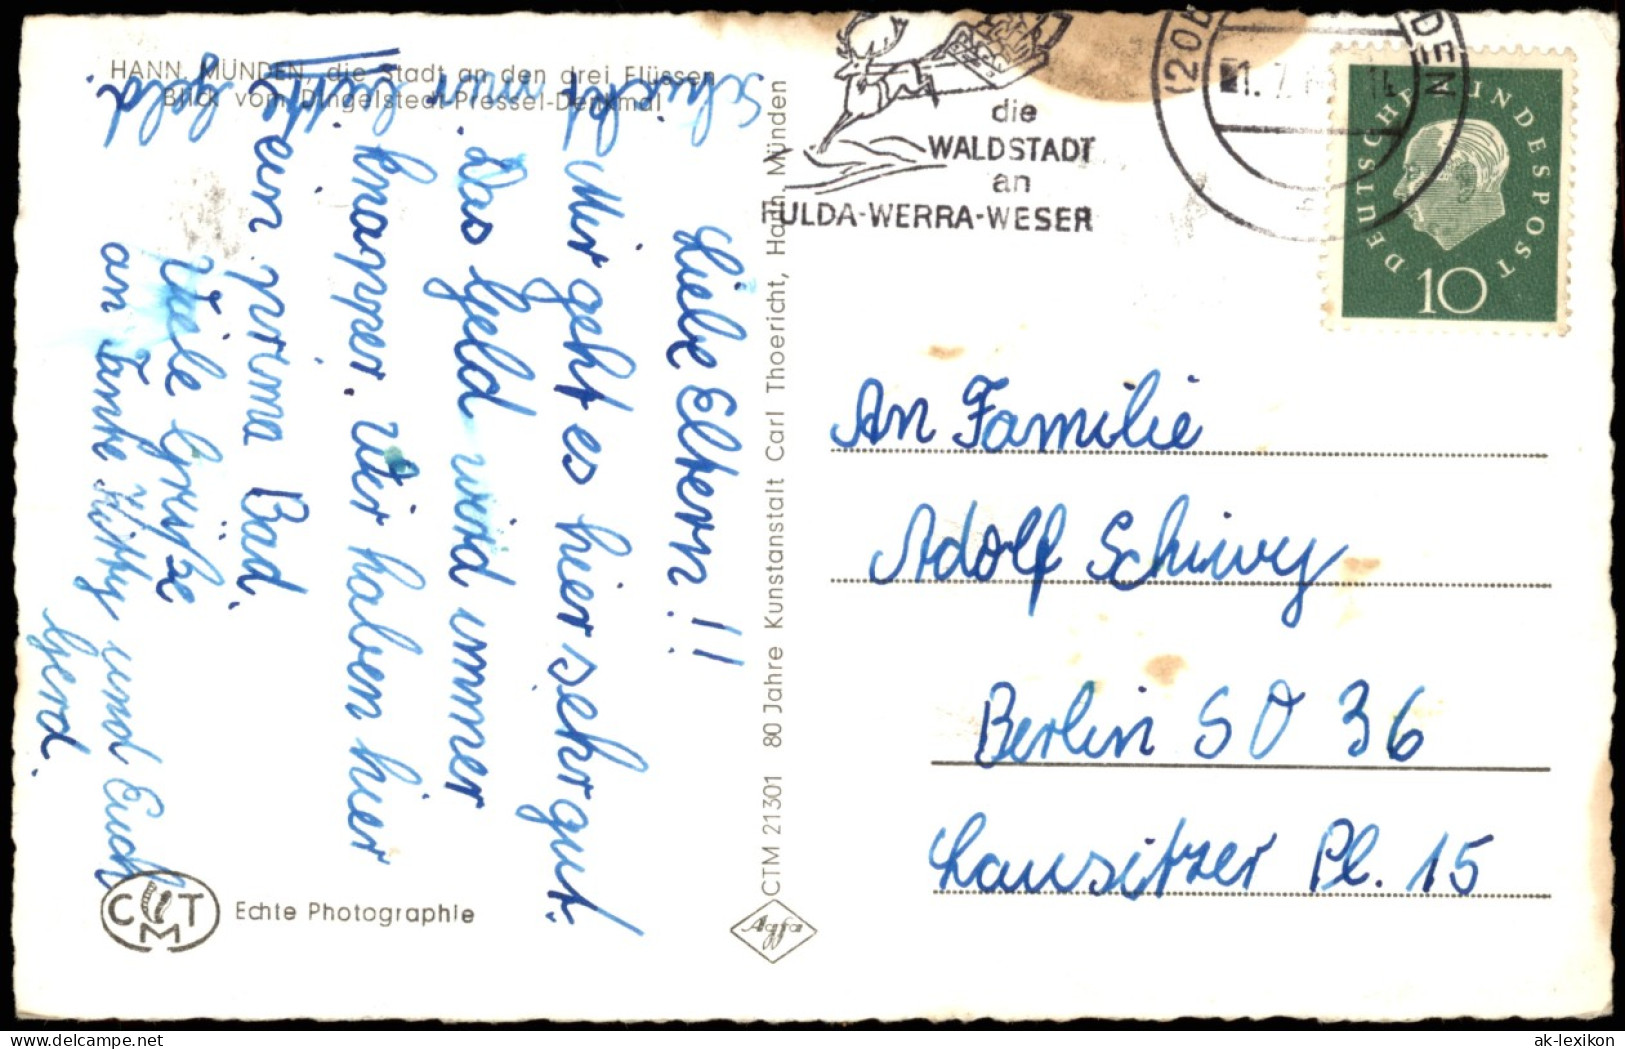 HANN. MÜNDEN, die Stadt an den drei Flüssen
Blick vom Dingelstedt-Pressel-Denkmal
Liebe Eltern!!
Mir geht es hier sehr gut.
Das Geld wird immer
knapper. Wir haben hier
ein prima Bad.
Viele Grüße
an Tante Kitty und Euch
Gerd.
Schickt mir bitte
bald
CTM 21301 80 Jahre Kunstanstalt Carl Thoericht, Hann. Münden
Agfa
CMT
Echte Photographie
die
WALDSTADT
an
FULDA-WERRA-WESER
(20b
DEN
1.7.
14
DEUTSCHE BUNDESPOST
10
An Familie
Adolf Schiwy
Berlin SO 36
Lausitzer Pl. 15
ak-lexikon